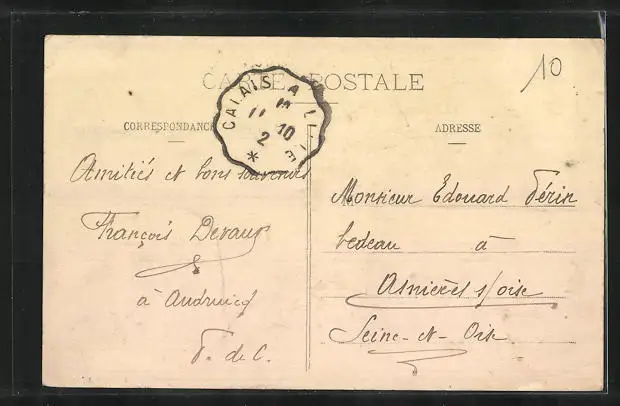 10
CARTE POSTALE
CALAIS A LILLE
11
2 10
CORRESPONDANCE
ADRESSE
Amitiés et bons souvenirs
François Devaux
à Audruicq
P. de C.
Monsieur Edouard Périn
bedeau à
Asnières s/oise
Seine-et-Oise